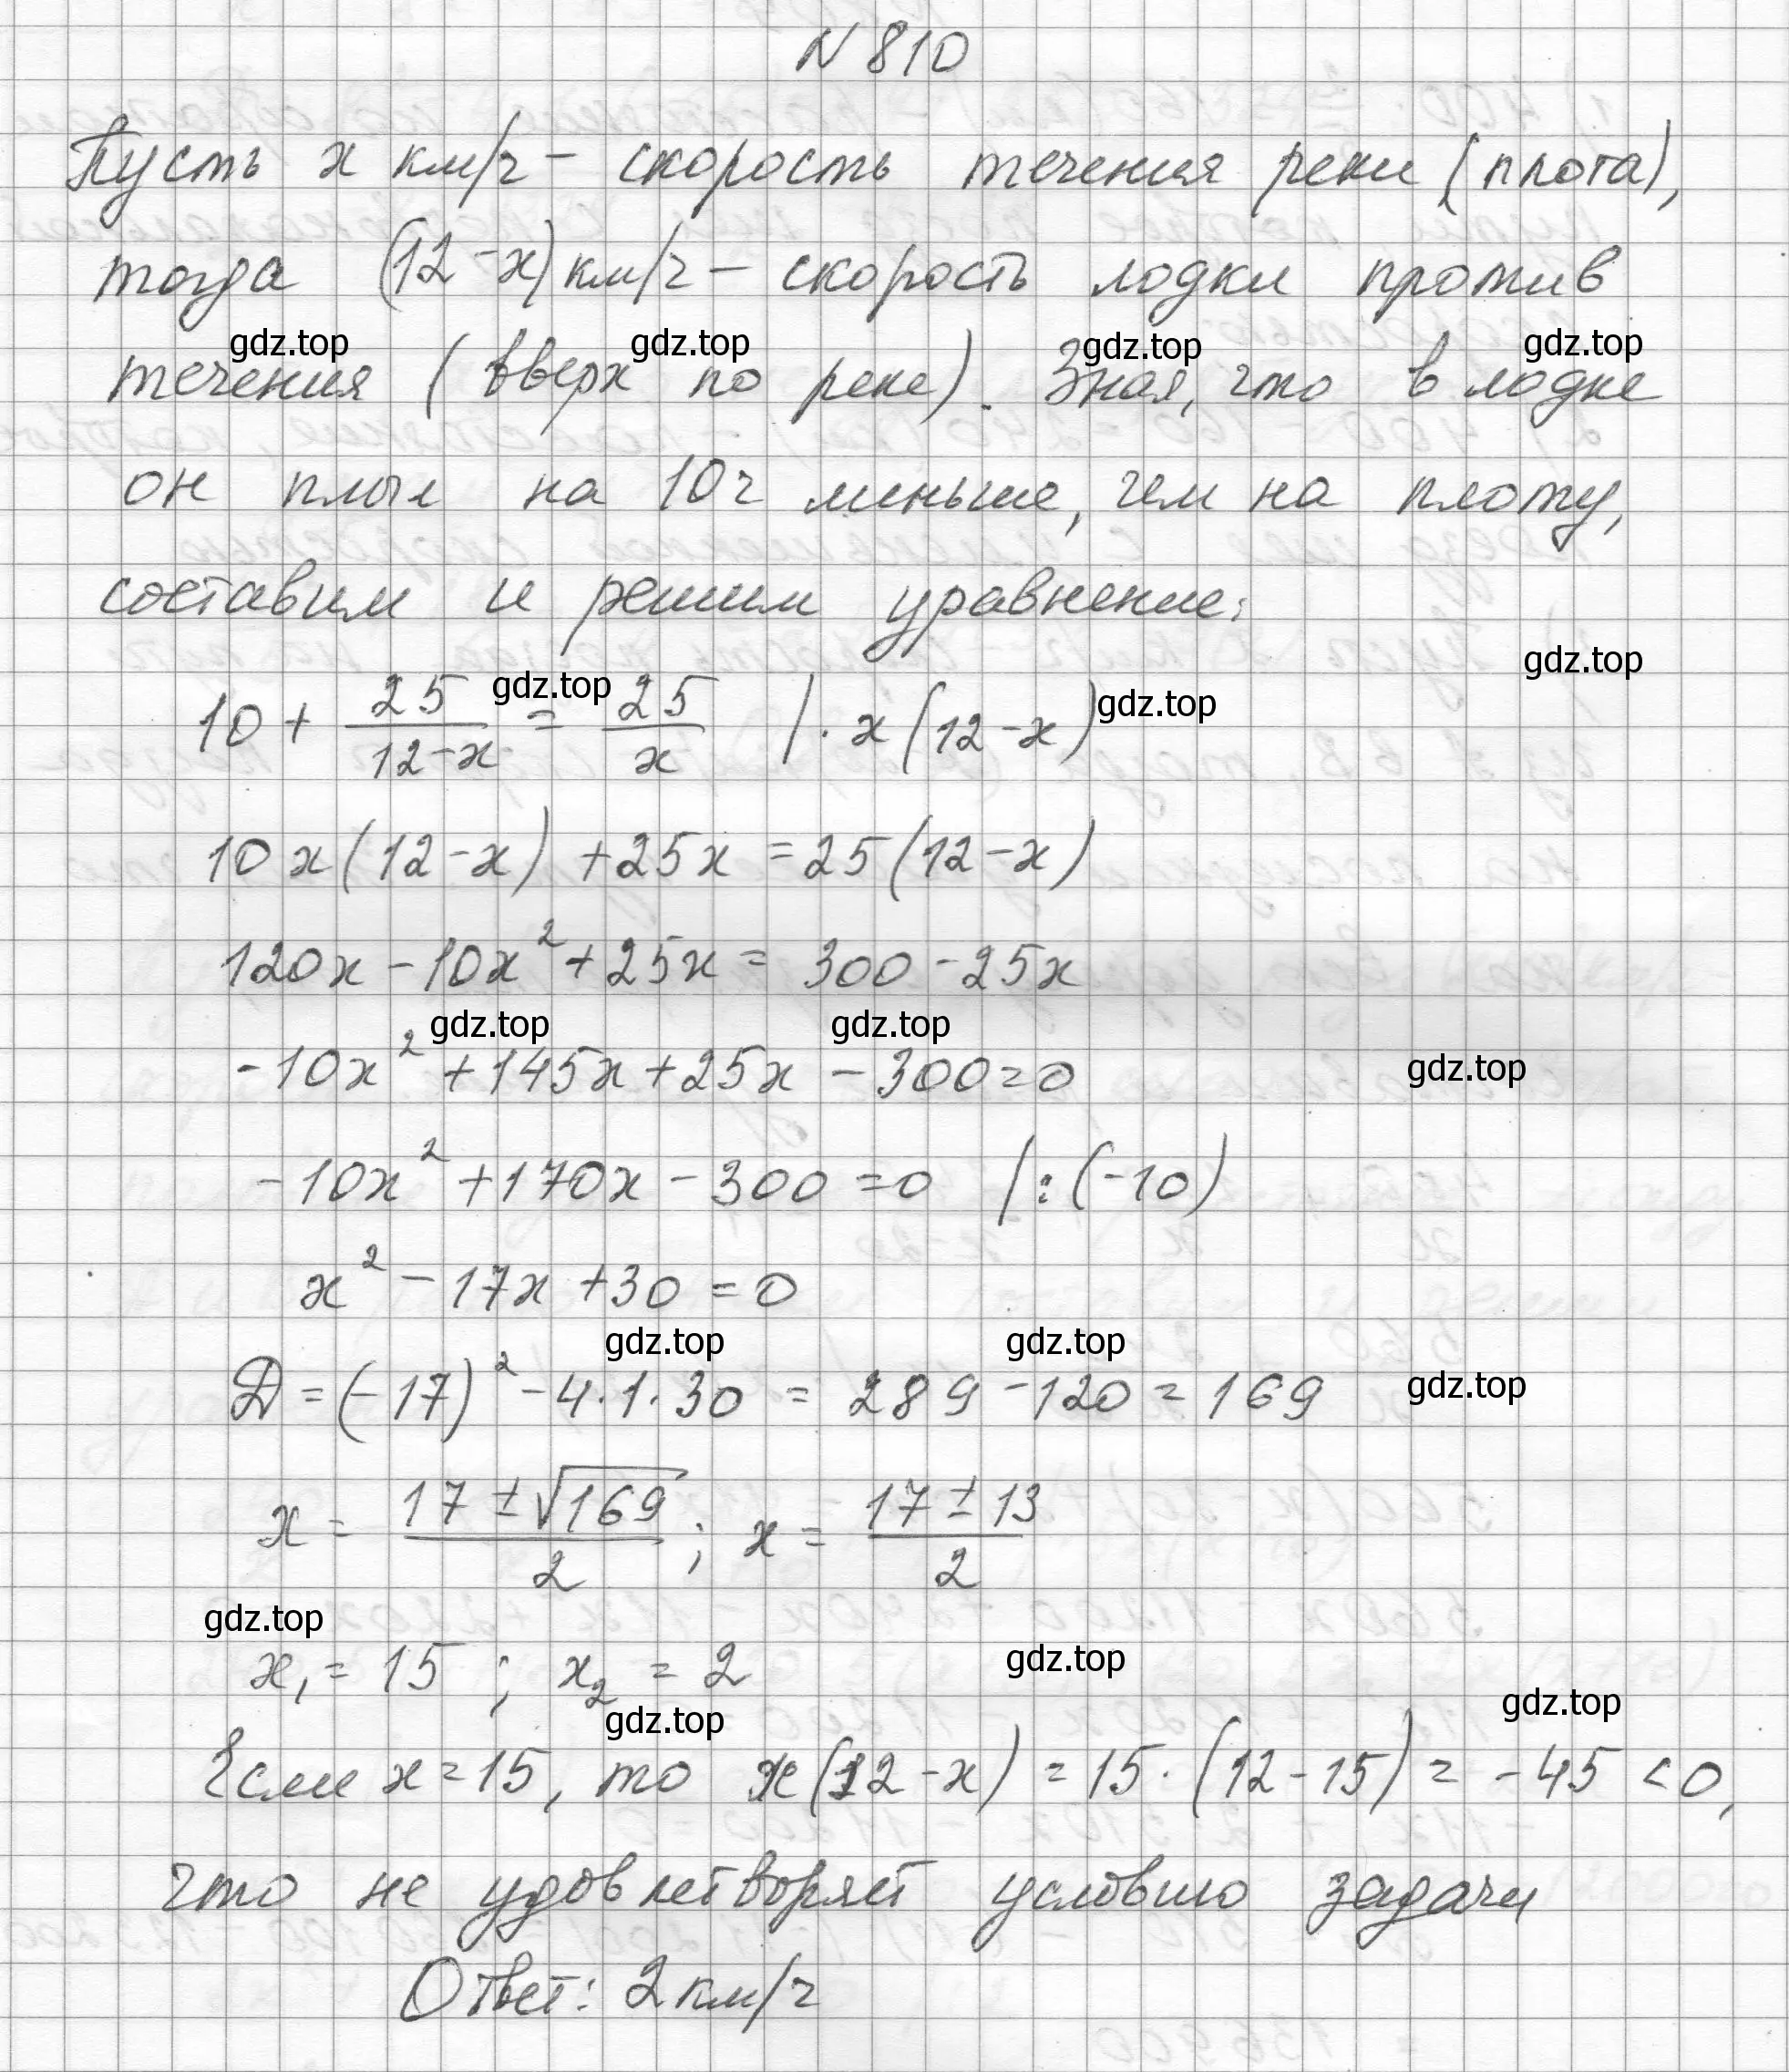 N 810
Пусть x км/ч – скорость течения реки (плота),
тогда (12 - x) км/ч – скорость лодки против
gdz.top gdz.top gdz.top gdz.top
течения (вверх по реке). Зная, что в лодке
он плыл на 10 ч меньше, чем на плоту,
составим и решим уравнение:
gdz.top
10 + 25/(12 - x) = 25/x | · x(12 - x)
gdz.top gdz.top
10x(12 - x) + 25x = 25(12 - x)
120x - 10x² + 25x = 300 - 25x
gdz.top gdz.top
-10x² + 145x + 25x - 300 = 0
gdz.top
-10x² + 170x - 300 = 0 | : (-10)
x² - 17x + 30 = 0
gdz.top gdz.top
D = (-17)² - 4 · 1 · 30 = 289 - 120 = 169
gdz.top
x = (17 ± √169)/2 ; x = (17 ± 13)/2
gdz.top
x₁ = 15 ; x₂ = 2
gdz.top
gdz.top gdz.top
Если x = 15, то x(12 - x) = 15 · (12 - 15) = -45 < 0,
что не удовлетворяет условию задачи
Ответ: 2 км/ч